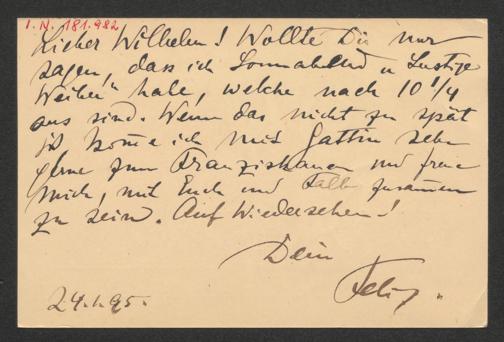 I.N. 181.982
Lieber Wilhelm! Wollte Dir nur
sagen, dass ich Sonnabend „Lustige
Weiber" habe, welche nach 10 1/4
aus sind. Wenn das nicht zu spät
ist, komme ich mit Gattin sehr
gerne zum Franziskaner und freue
mich, mit Euch und Kalb zusammen
zu sein. Auf Wiedersehen!
Dein
Felix.
24.1.95.